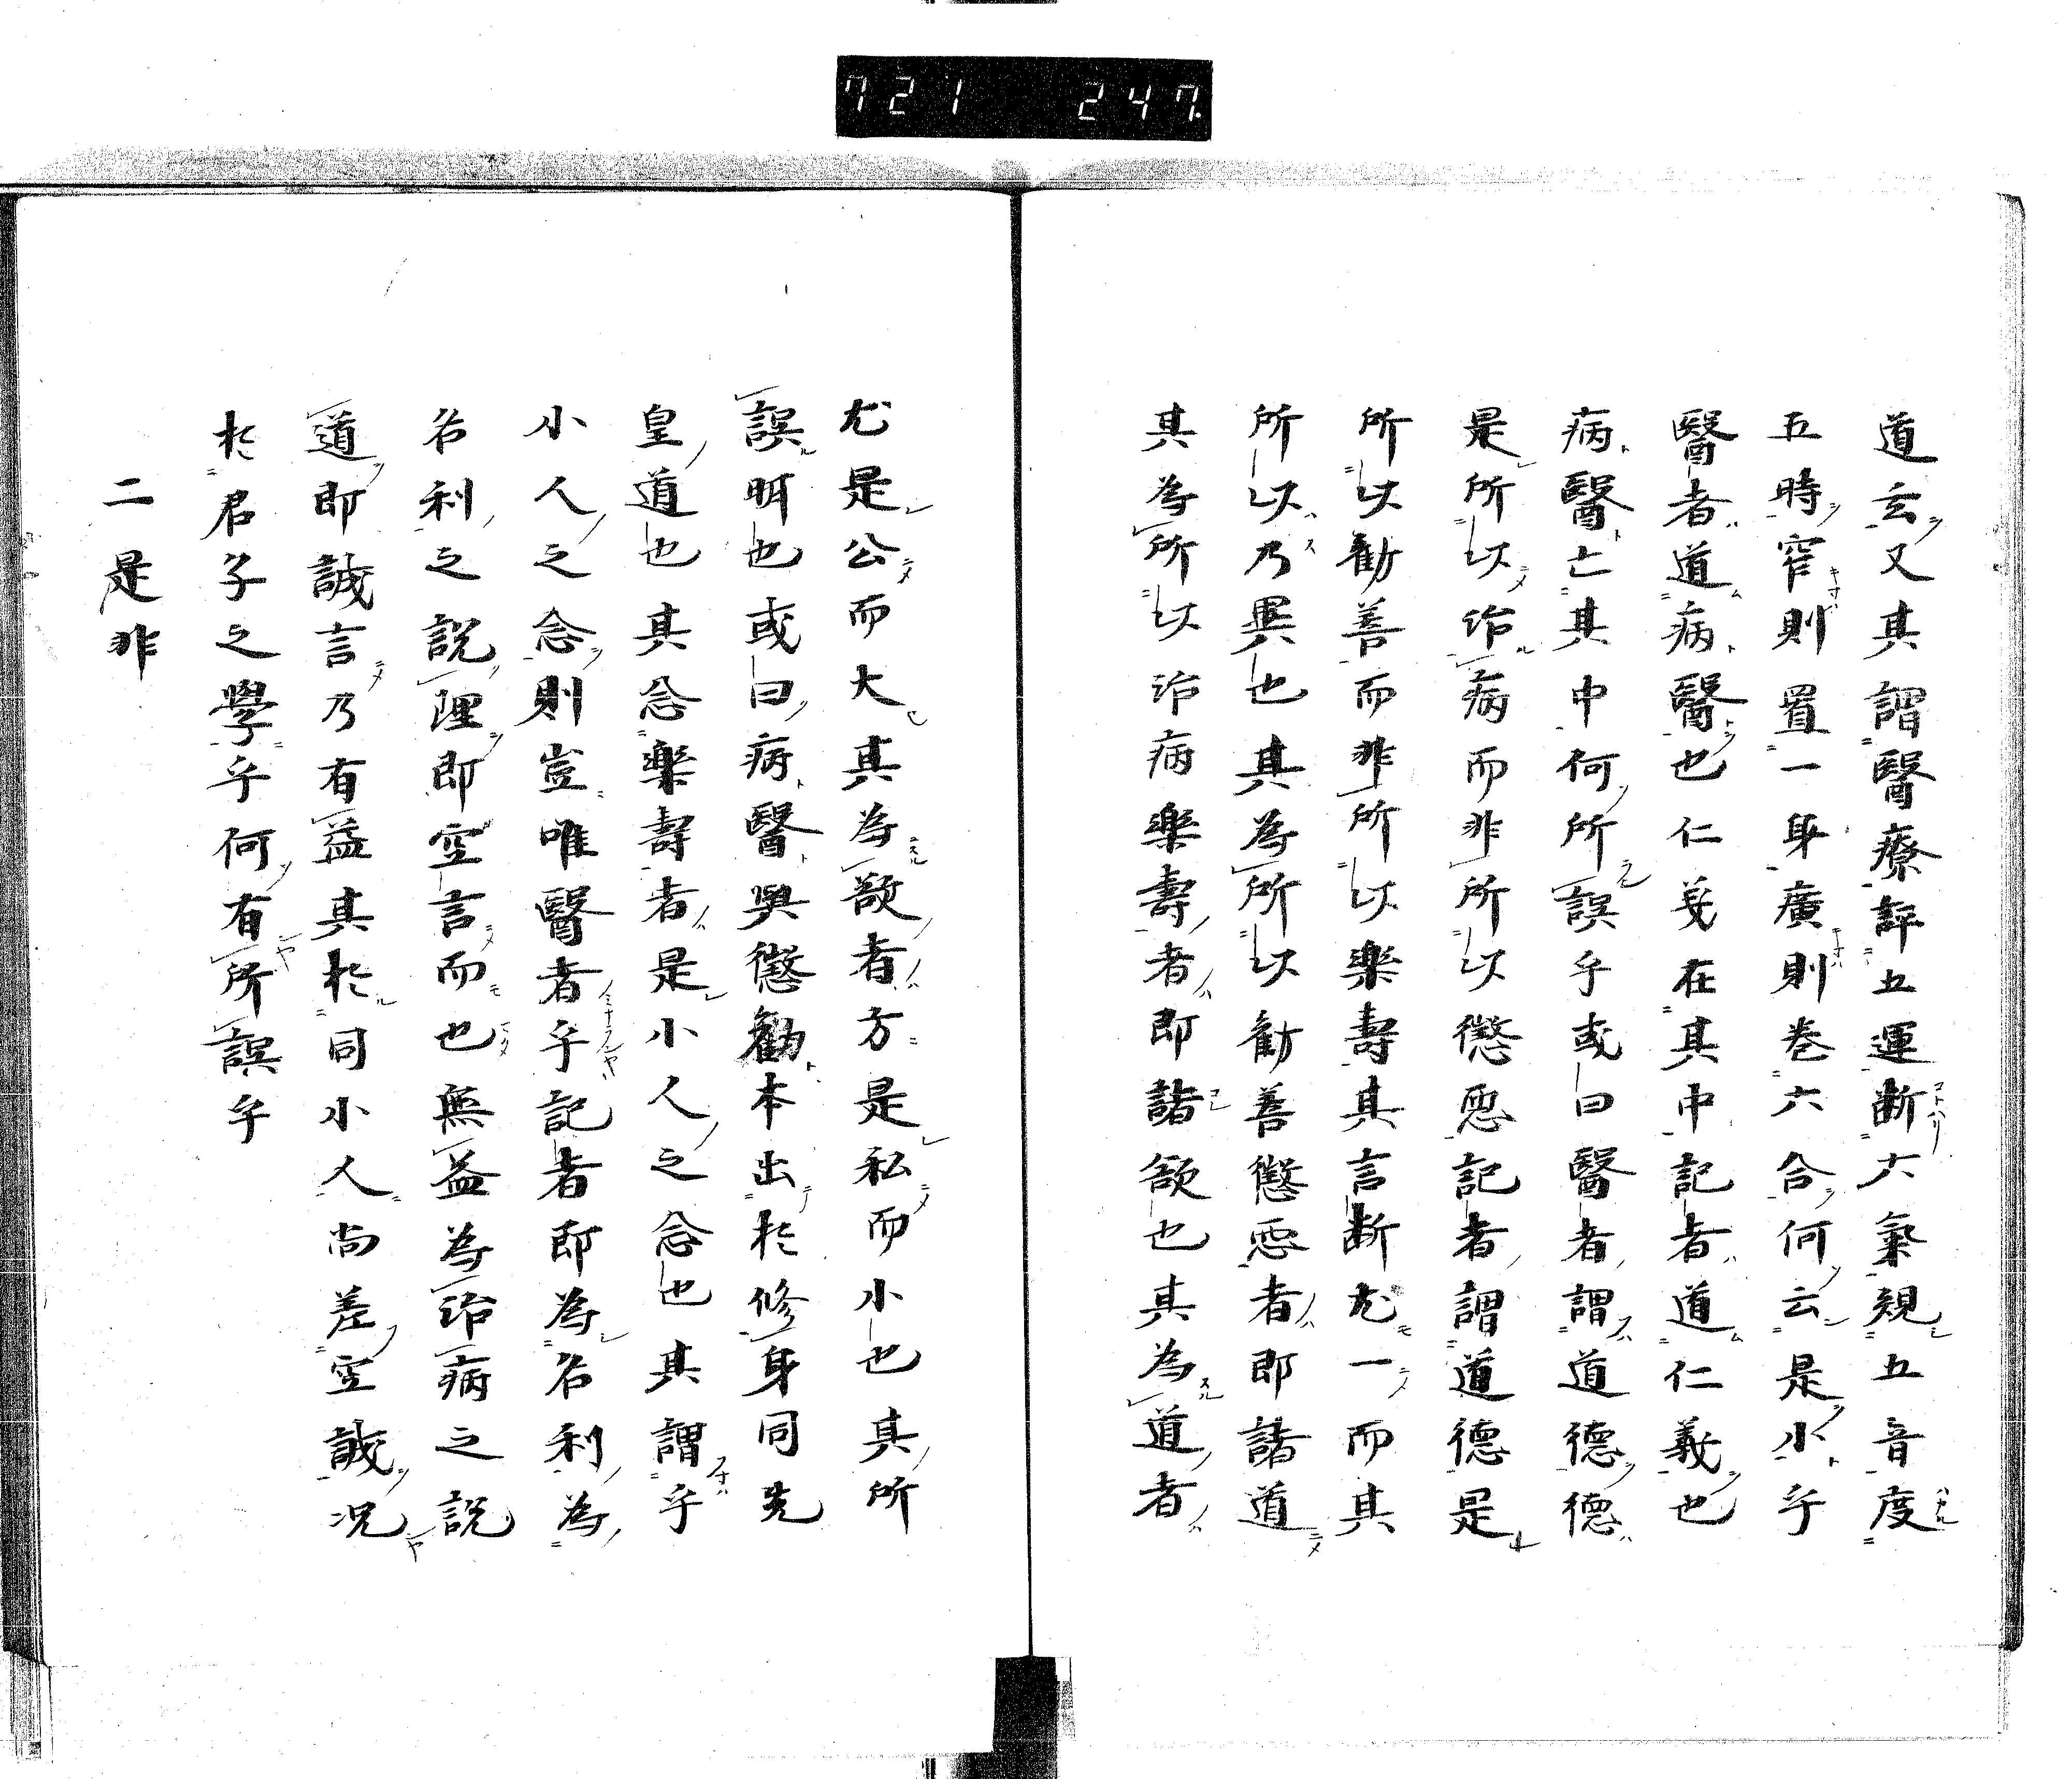 721 247.
道玄又其謂醫療評五運断六氣規五音度
五時窄則置一身廣則卷六合何云是小乎
醫者道病醫也仁義在其中記者道仁義也
病醫亡其中何所誤乎或曰醫者謂道德德
是所以治病而非所以懲惡記者謂道德是
所以勸善而非所以樂壽其言断尤一而其
所以乃異也其為所以勸善懲惡者即諸道
其為所以治病樂壽者即諸欲也其為道者
尤是公而大其為欲者方是私而小也其所
誤明也或曰病醫與懲勸本出於修身同先
皇道也其念樂壽者是小人之念也其謂乎
小人之念則豈唯醫者乎記者即為名利為
名利之說理即空言而也無益為治病之說
道即誠言乃有益其於同小人尚差空誠况
於君子之學乎何有所誤乎
二是非